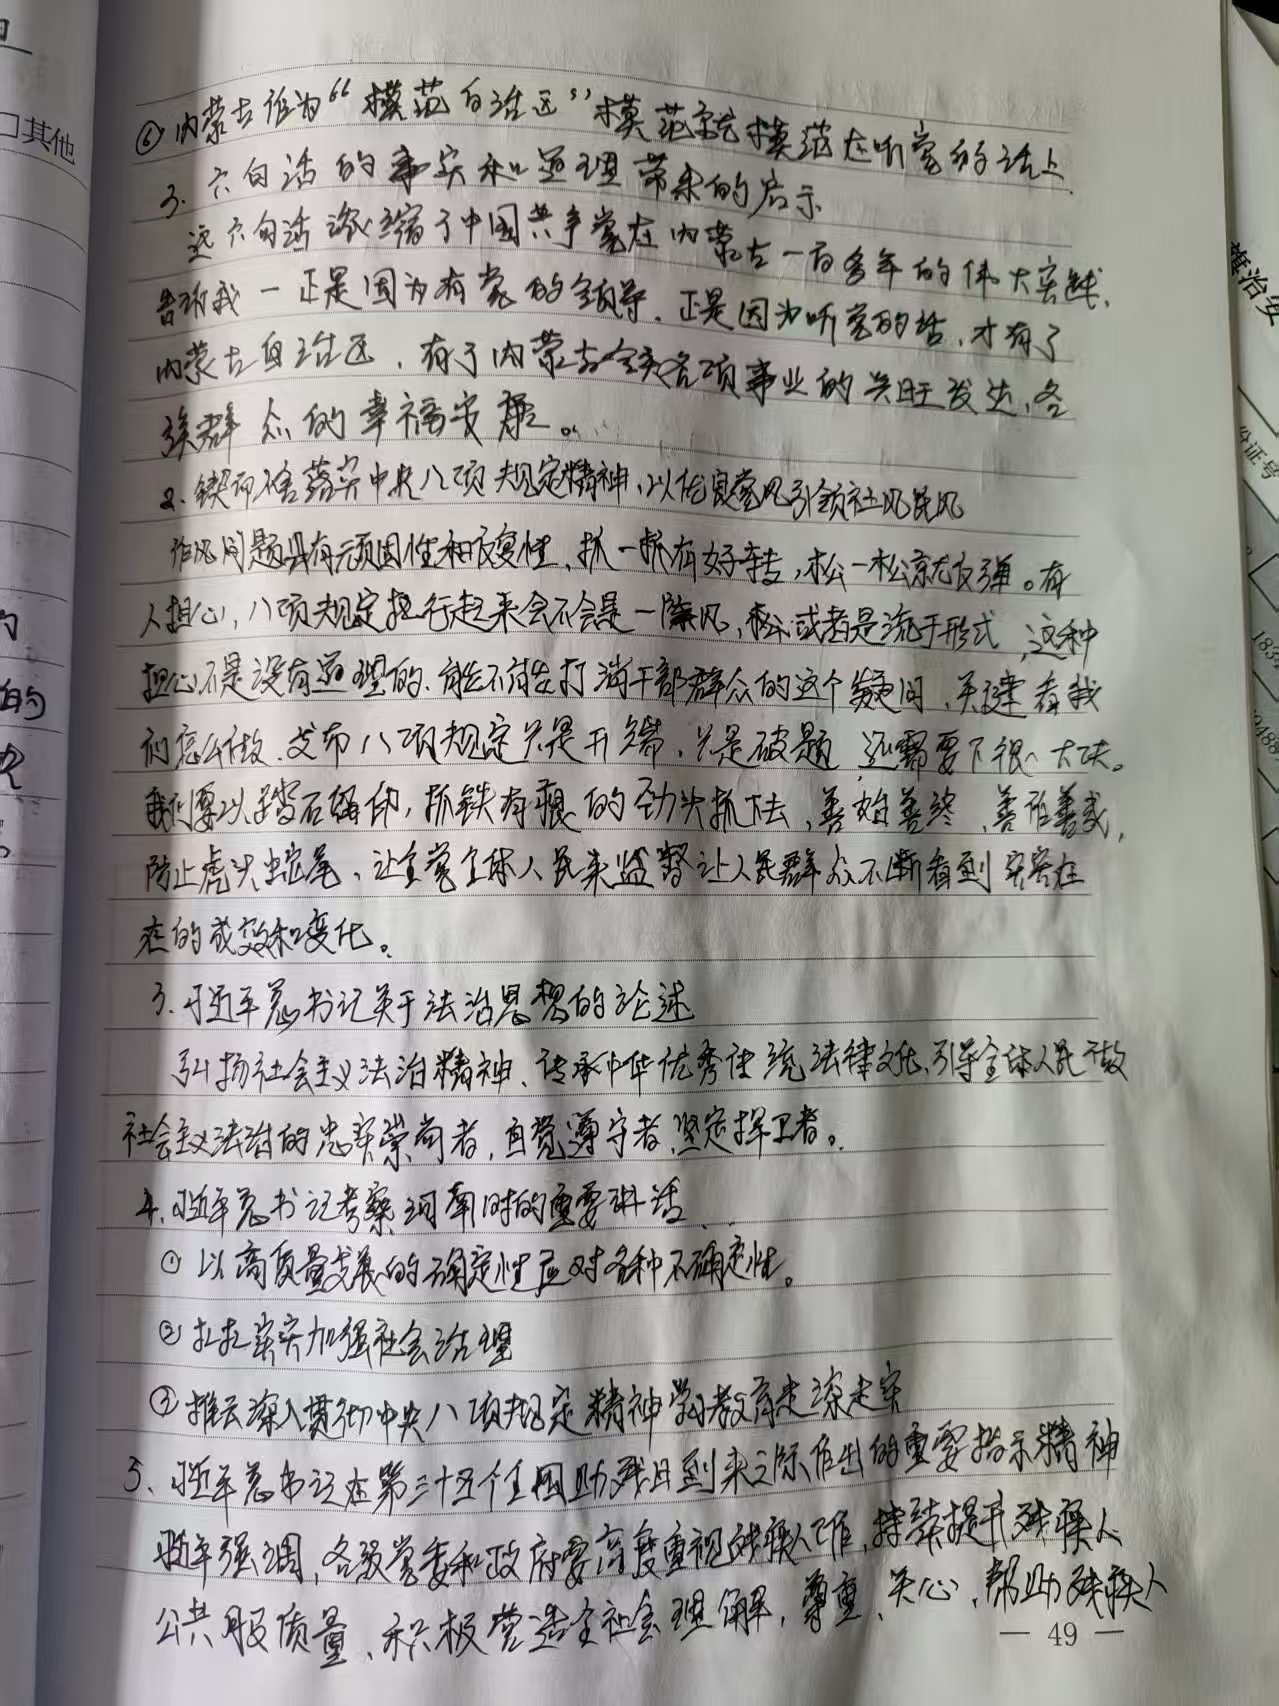 其他
⑥内蒙古作为“模范自治区”模范就模范在听党的话上.
3. 六句话的事实和道理带来的启示
这六句话浓缩了中国共产党在内蒙古一百多年的伟大实践,
告诉我一正是因为有党的领导、正是因为听党的话,才有了
内蒙古自治区,有了内蒙古各项事业的兴旺发达,各
族群众的幸福安康。
2. 锲而不舍落实中央八项规定精神,以优良党风引领社风民风
作风问题具有顽固性和反复性、抓一抓有好转,松一松就反弹。有
人担心,八项规定执行起来会不会是一阵风,或者是流于形式,这种
担心不是没有道理的.能不能打消干部群众的这个疑问、关键看我
们怎么做.发布八项规定只是开端、只是破题,还需要下很大功夫。
我们要以踏石留印,抓铁有痕的劲头抓下去,善始善终、善作善成,
防止虎头蛇尾、让全党全体人民来监督让人民群众不断看到实实在
在的成效和变化。
3. 习近平总书记关于法治思想的论述
弘扬社会主义法治精神、传承中华优秀传统法律文化、引导全体人民做
社会主义法治的忠实崇尚者,自觉遵守者、坚定捍卫者。
4. 习近平总书记考察河南时的重要讲话
①以高质量发展的确定性应对各种不确定性。
②扎扎实实加强社会治理
③推动深入贯彻中央八项规定精神学习教育走深走实
5、习近平总书记在第三十五个全国助残日到来之际作出的重要指示精神
习近平强调,各级党委和政府要高度重视残疾人工作,持续提升残疾人
公共服质量、积极营造全社会理解,尊重、关心、帮助残疾人
— 49 —